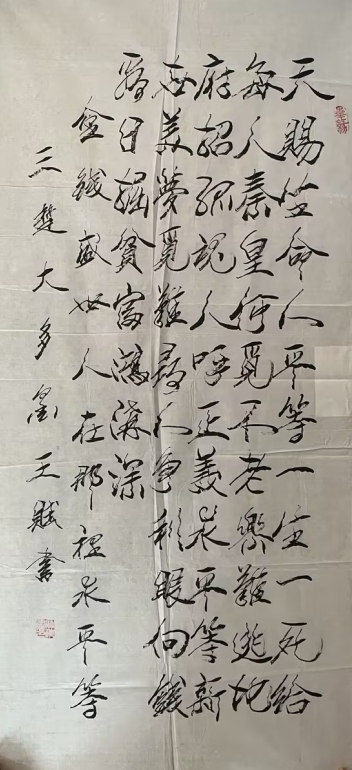 天賜生命人平等一生一死給
每人秦皇何覓不老藥難逃地
府招孤魂人呼正義求平等新
世美夢覓難尋人爭利眼向錢
看日趨貧富鴻溝深
金錢盛世人在那裡求平等
三楚大多王賦書